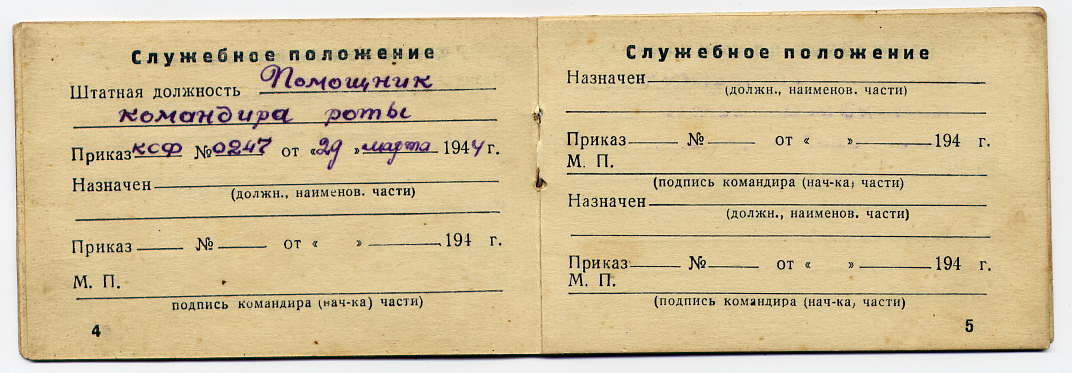 Служебное положение
Штатная должность Помощник
командира роты
Приказ КСФ № 0247 от «29» марта 1944 г.
Назначен
(должн., наименов. части)
Приказ № от « » 194 г.
М. П.
подпись командира (нач-ка) части)
4
Служебное положение
Назначен
(должн., наименов. части)
Приказ № от « » 194 г.
М. П.
(подпись командира (нач-ка, части)
Назначен
(должн., наименов. части)
Приказ № от « » 194 г.
М. П.
(подпись командира (нач-ка, части)
5